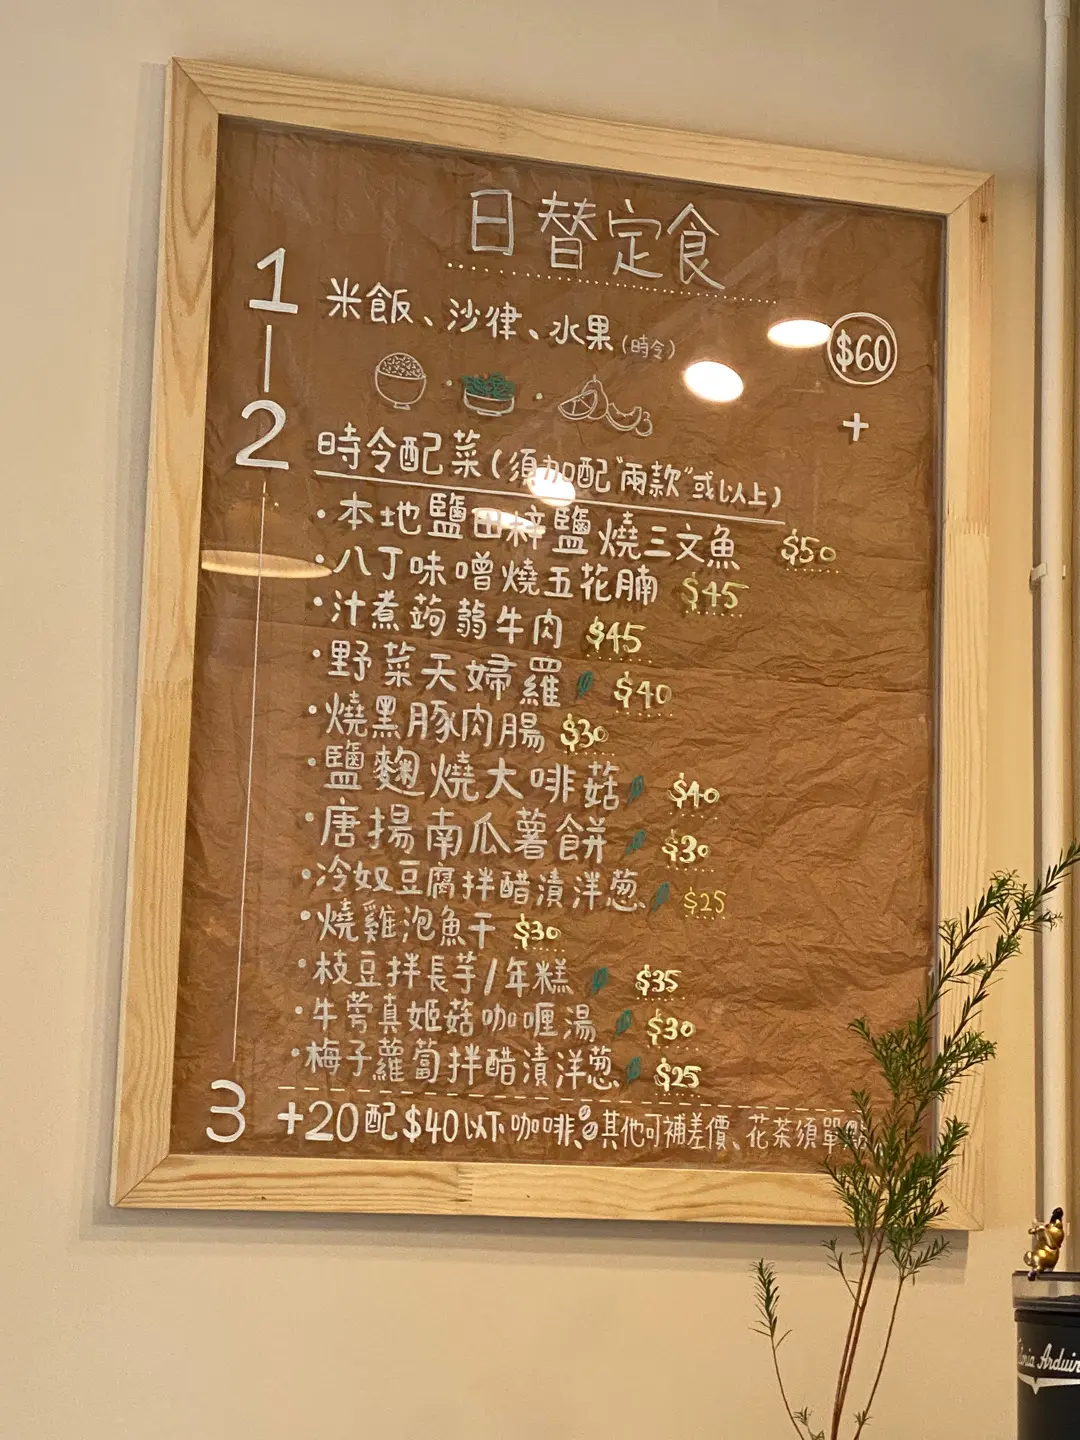 日替定食
1 米飯、沙律、水果(時令) $60
+
2 時令配菜(須加配"兩款"或以上)
·本地鹽田梓鹽燒三文魚 $50
·八丁味噌燒五花腩 $45
·汁煮蒟蒻牛肉 $45
·野菜天婦羅 $40
·燒黑豚肉腸 $30
·鹽麴燒大啡菇 $40
·唐揚南瓜薯餅 $30
·冷奴豆腐拌醋漬洋葱 $25
·燒雞泡魚干 $30
·枝豆拌長芋/年糕 $35
·牛蒡真姬菇咖喱湯 $30
·梅子蘿蔔拌醋漬洋葱 $25
3 +20配$40以下咖啡、其他可補差價、花茶須單點
Arduin